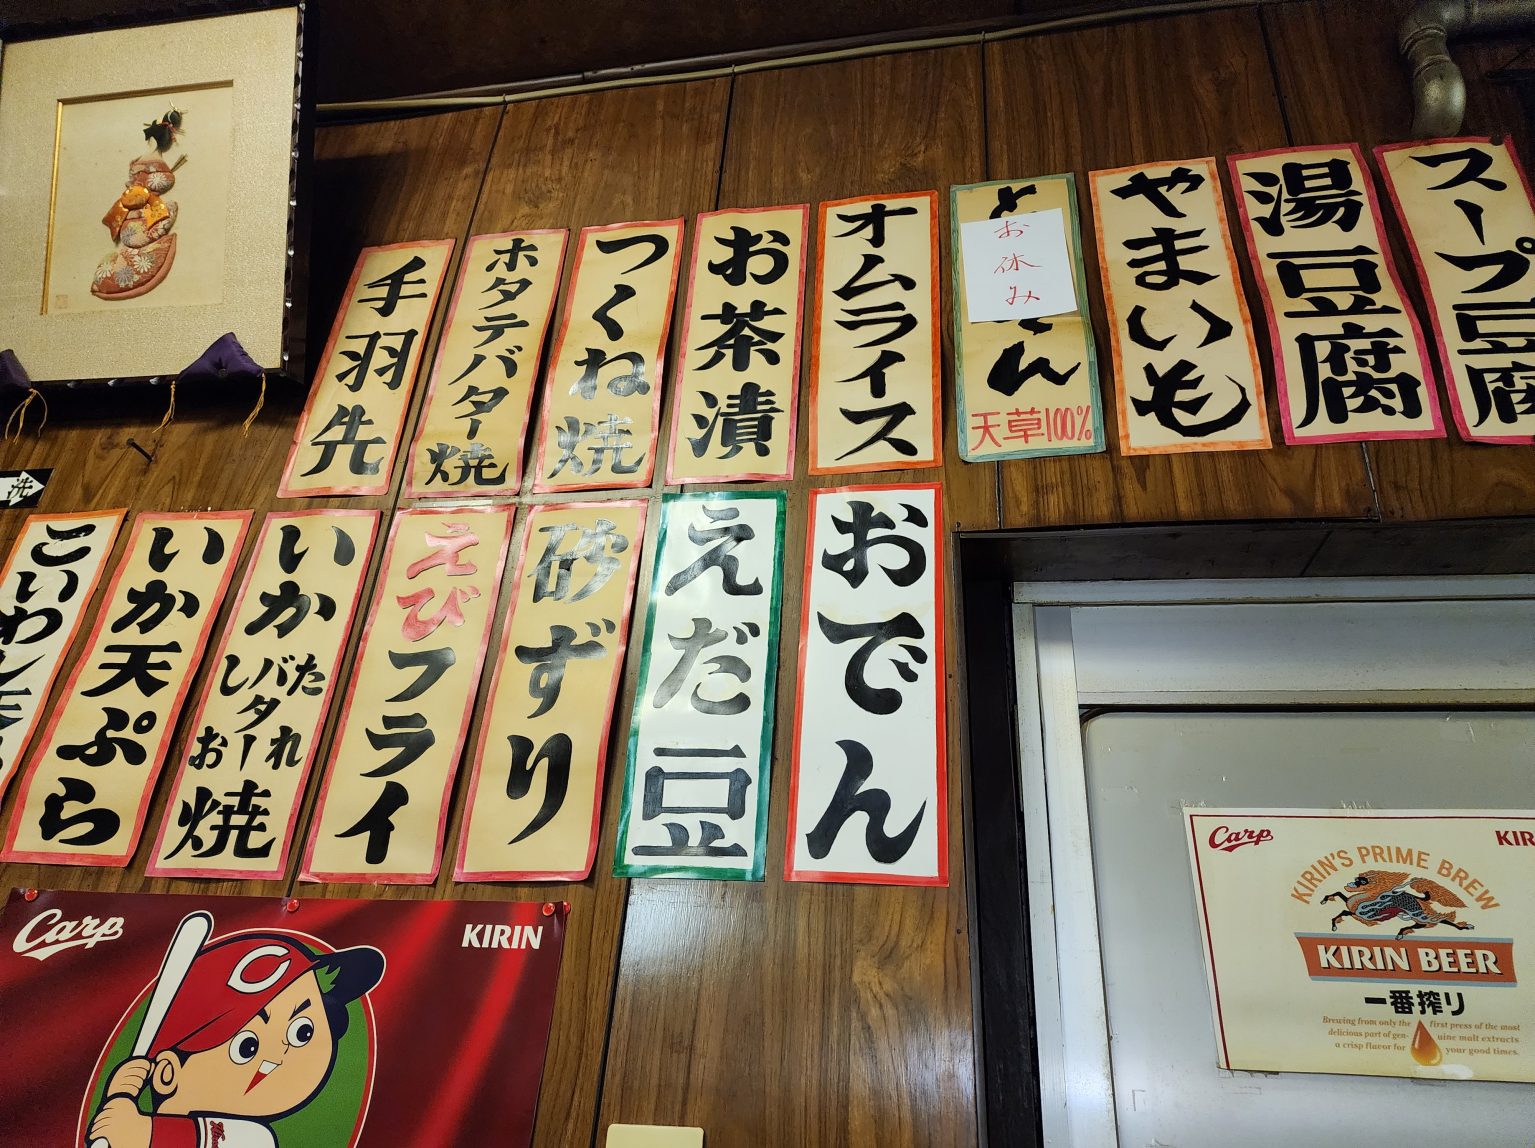 スープ豆腐
湯豆腐
やまいも
お休み
と
てん
天草100%
オムライス
お茶漬
つくね焼
ホタテバター焼
手羽先
おでん
えだ豆
砂ずり
えびフライ
いか
たれ
バター
しお
焼
いか天ぷら
こいわし天ぷら
洗
Carp
KIRIN
C
Carp
KIR
KIRIN'S PRIME BREW
KIRIN BEER
一番搾り
Brewing from only the first press of the most
delicious part of genuine malt extracts
a crisp flavor for your good times.